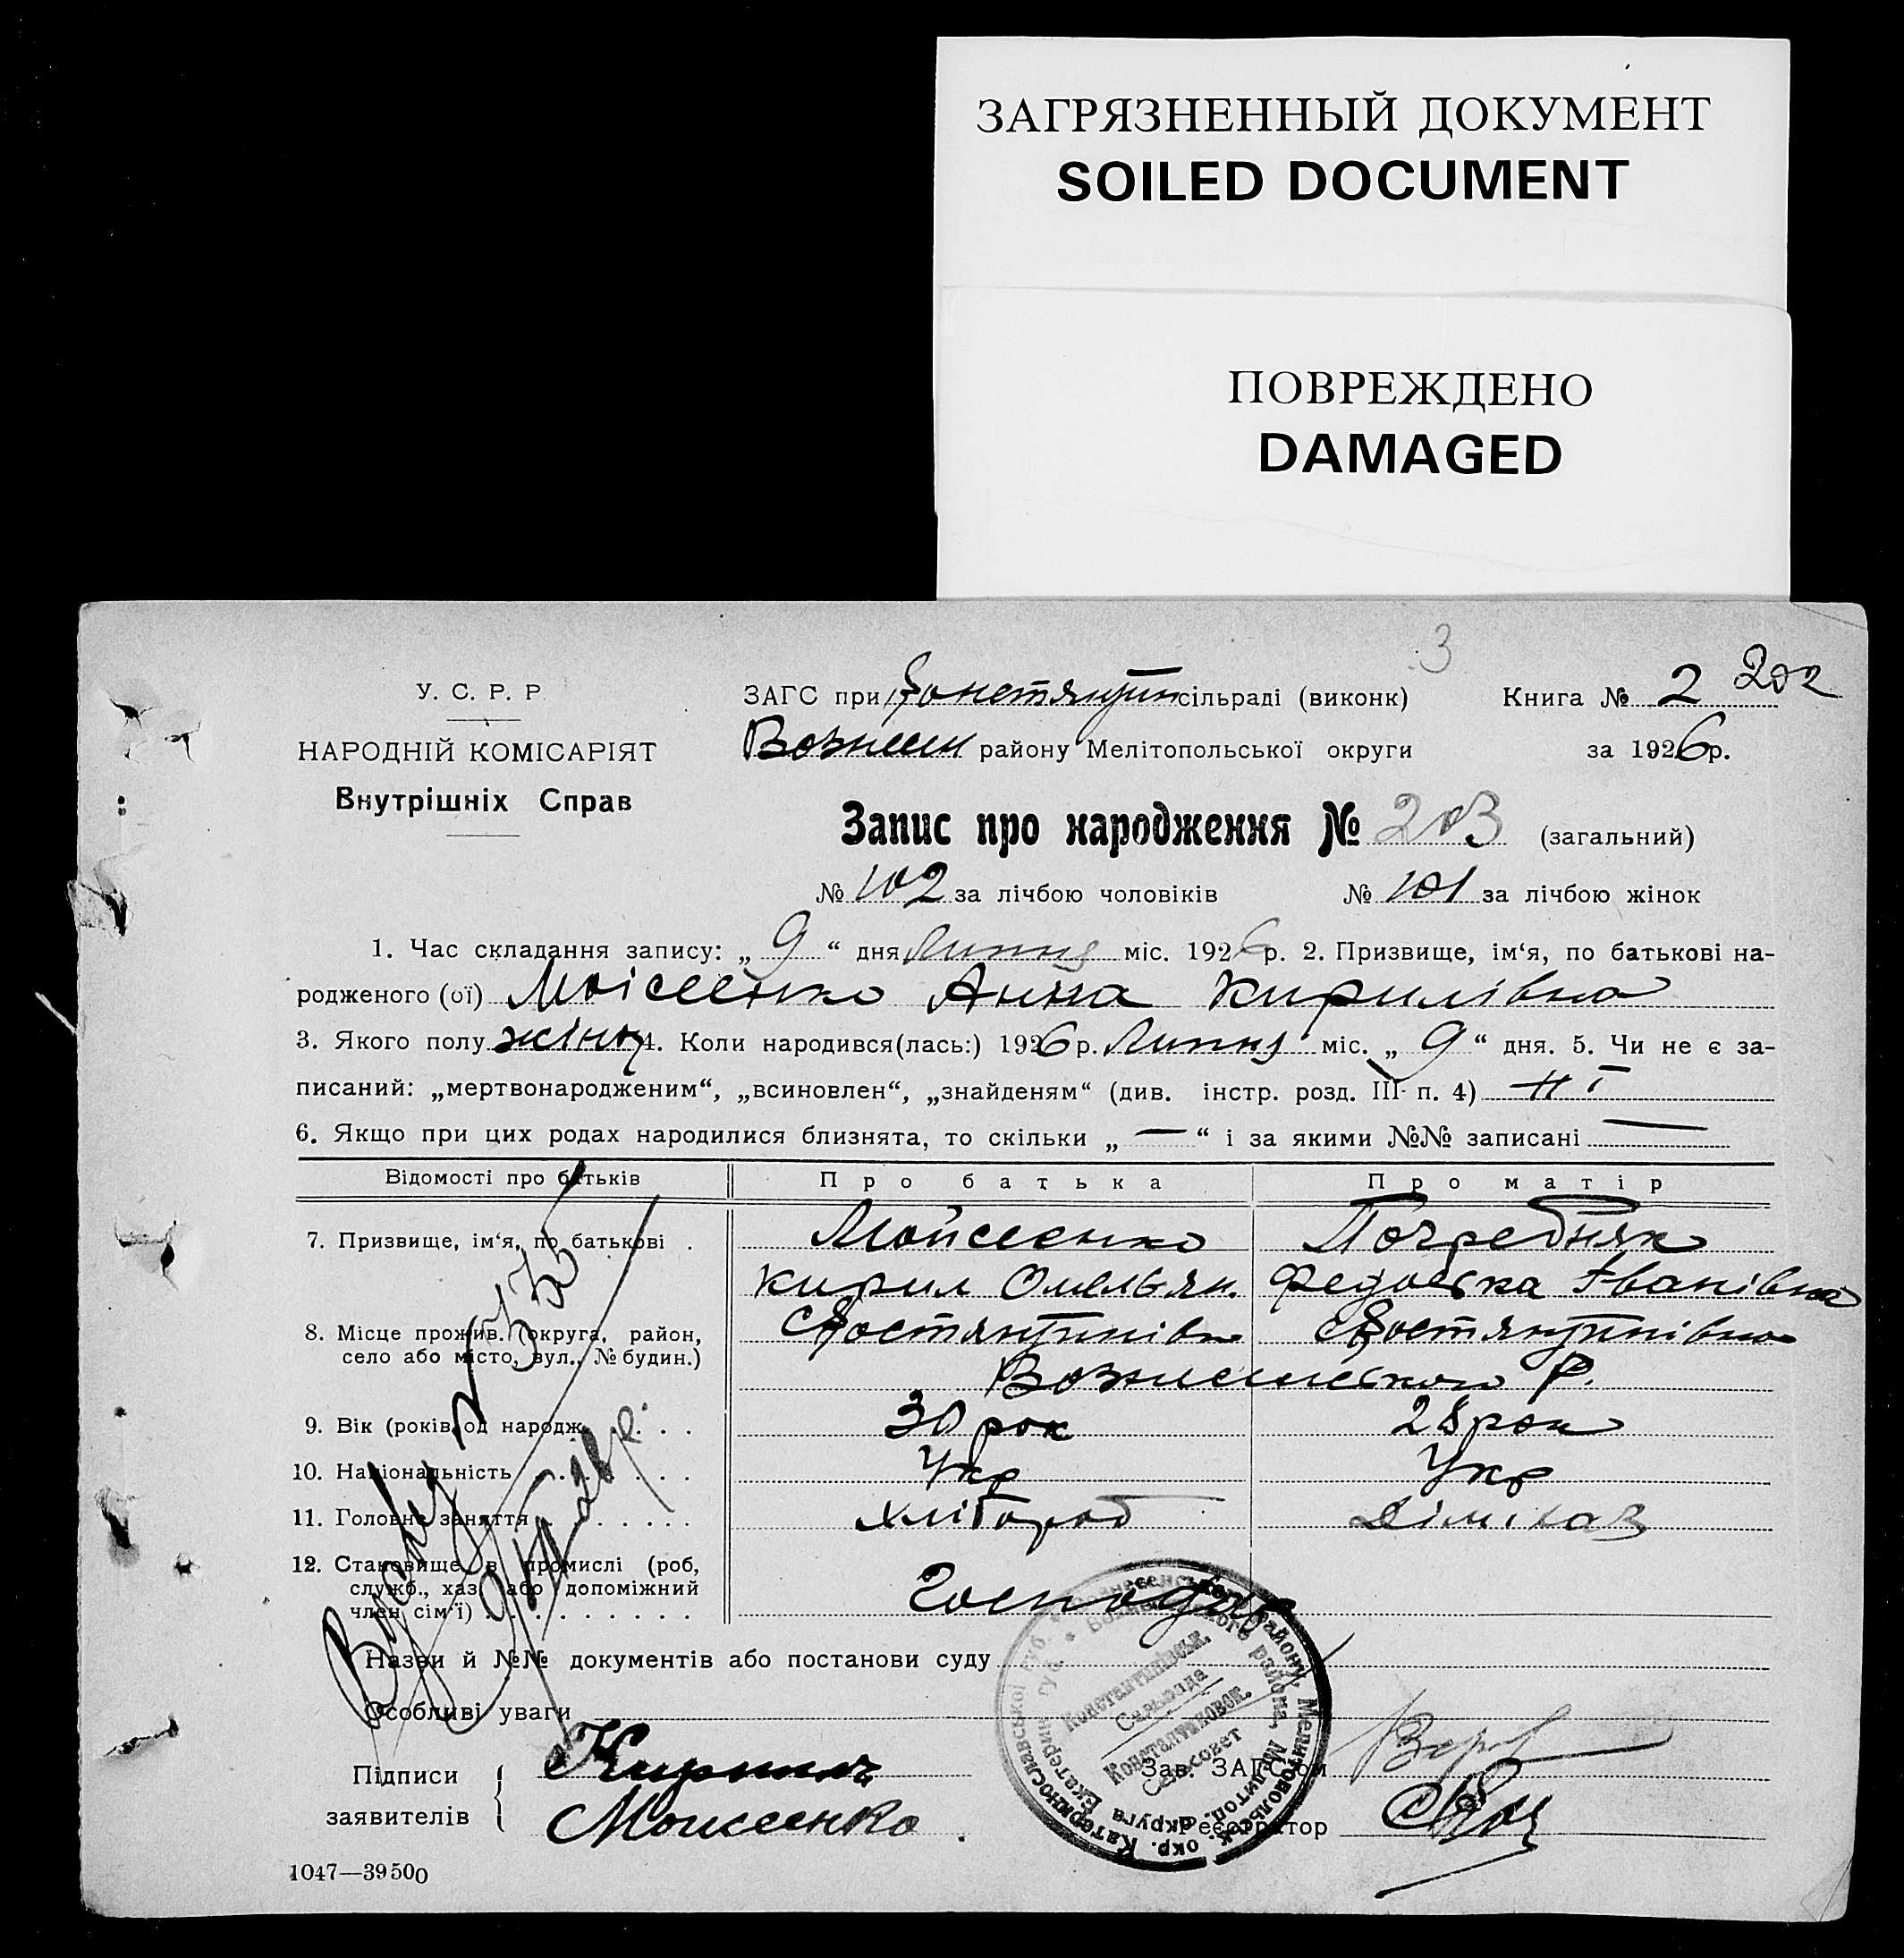 ЗАГРЯЗНЕННЫЙ ДОКУМЕНТ
SOILED DOCUMENT
ПОВРЕЖДЕНО
DAMAGED
3
У. С. Р. Р
НАРОДНІЙ КОМІСАРІЯТ
Внутрішніх Справ
ЗАГС при Констянтин сільраді (виконк) Книга № 2 202
Вознесен району Мелітопольської округи за 1926 р.
Запис про народження № 203 (загальний)
№ 102 за лічбою чоловіків № 101 за лічбою жінок
1. Час складання запису: „ 9 “ дня Липня міс. 1926 р. 2. Призвище, ім‘я, по батькові на-
родженого (ої) Моісеєнко Анна Кирилівна
3. Якого полу жіноч 4. Коли народився(лась:) 1926 р. Липня міс. „ 9 “ дня. 5. Чи не є за-
писаний: „мертвонародженим“, „всиновлен“, „знайденям“ (див. інстр. розд. III п. 4) ні
6. Якщо при цих родах народилися близнята, то скільки „ — “ і за якими №№ записані —
Відомості про батьків Про батька Про матір
7. Призвище, ім‘я, по батькові . Мойсеєнко Погребняк
Кирил Омельян. Федоська Іванівна
8. Місце прожив. (округа, район, Костянтинівк Костянтинівка
село або місто, вул., № будин.)
Вознесенського Р.
9. Вік (років од народж. . . . 30 рок 28 рок
10. Національність . . . . . . Укр Укр
11. Головне заняття . . . . . . Хлібороб
12. Становище в промислі (роб,
служб., хаз. або допоміжний Господар
член сім‘ї) . . . . . . . . . .
Назви й №№ документів або постанови суду
Особливі уваги
Підписи Кирилъ
заявителів Моисеенко
Зав. ЗАГС'ом
Реєстратор
Константинівськ.
Сільрада
Константиновск.
Сельсовет
1047—39500